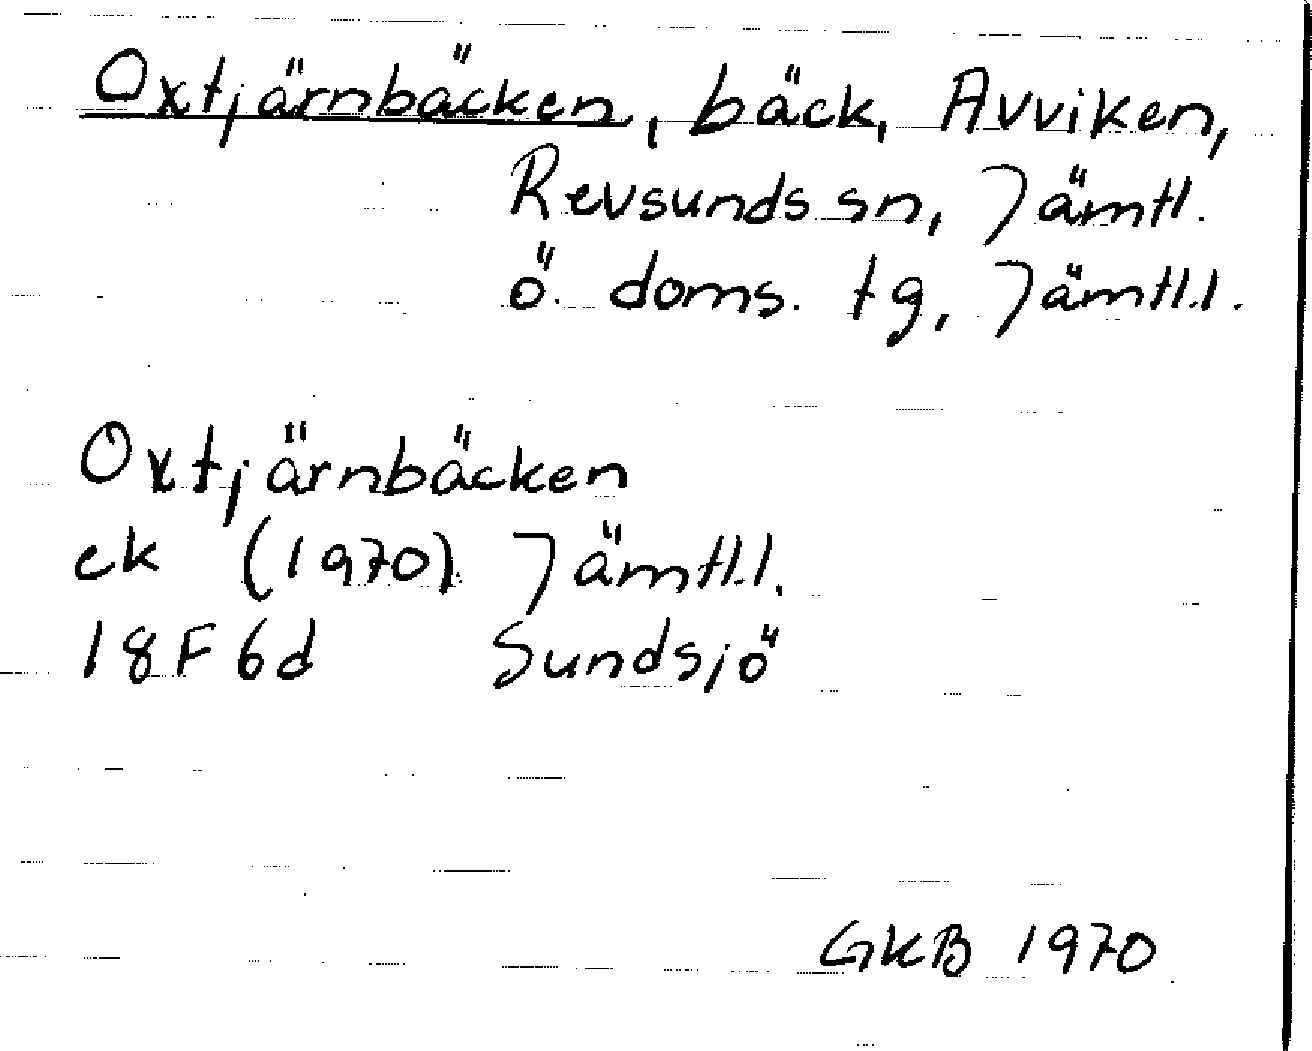 Oxtjärnbäcken, bäck, Avviken,
Revsunds sn, Jämtl.
ö. doms. tg, Jämtl.l.
Oxtjärnbäcken
ek (1970) Jämtl.l.
18F 6d Sundsjö
GKB 1970